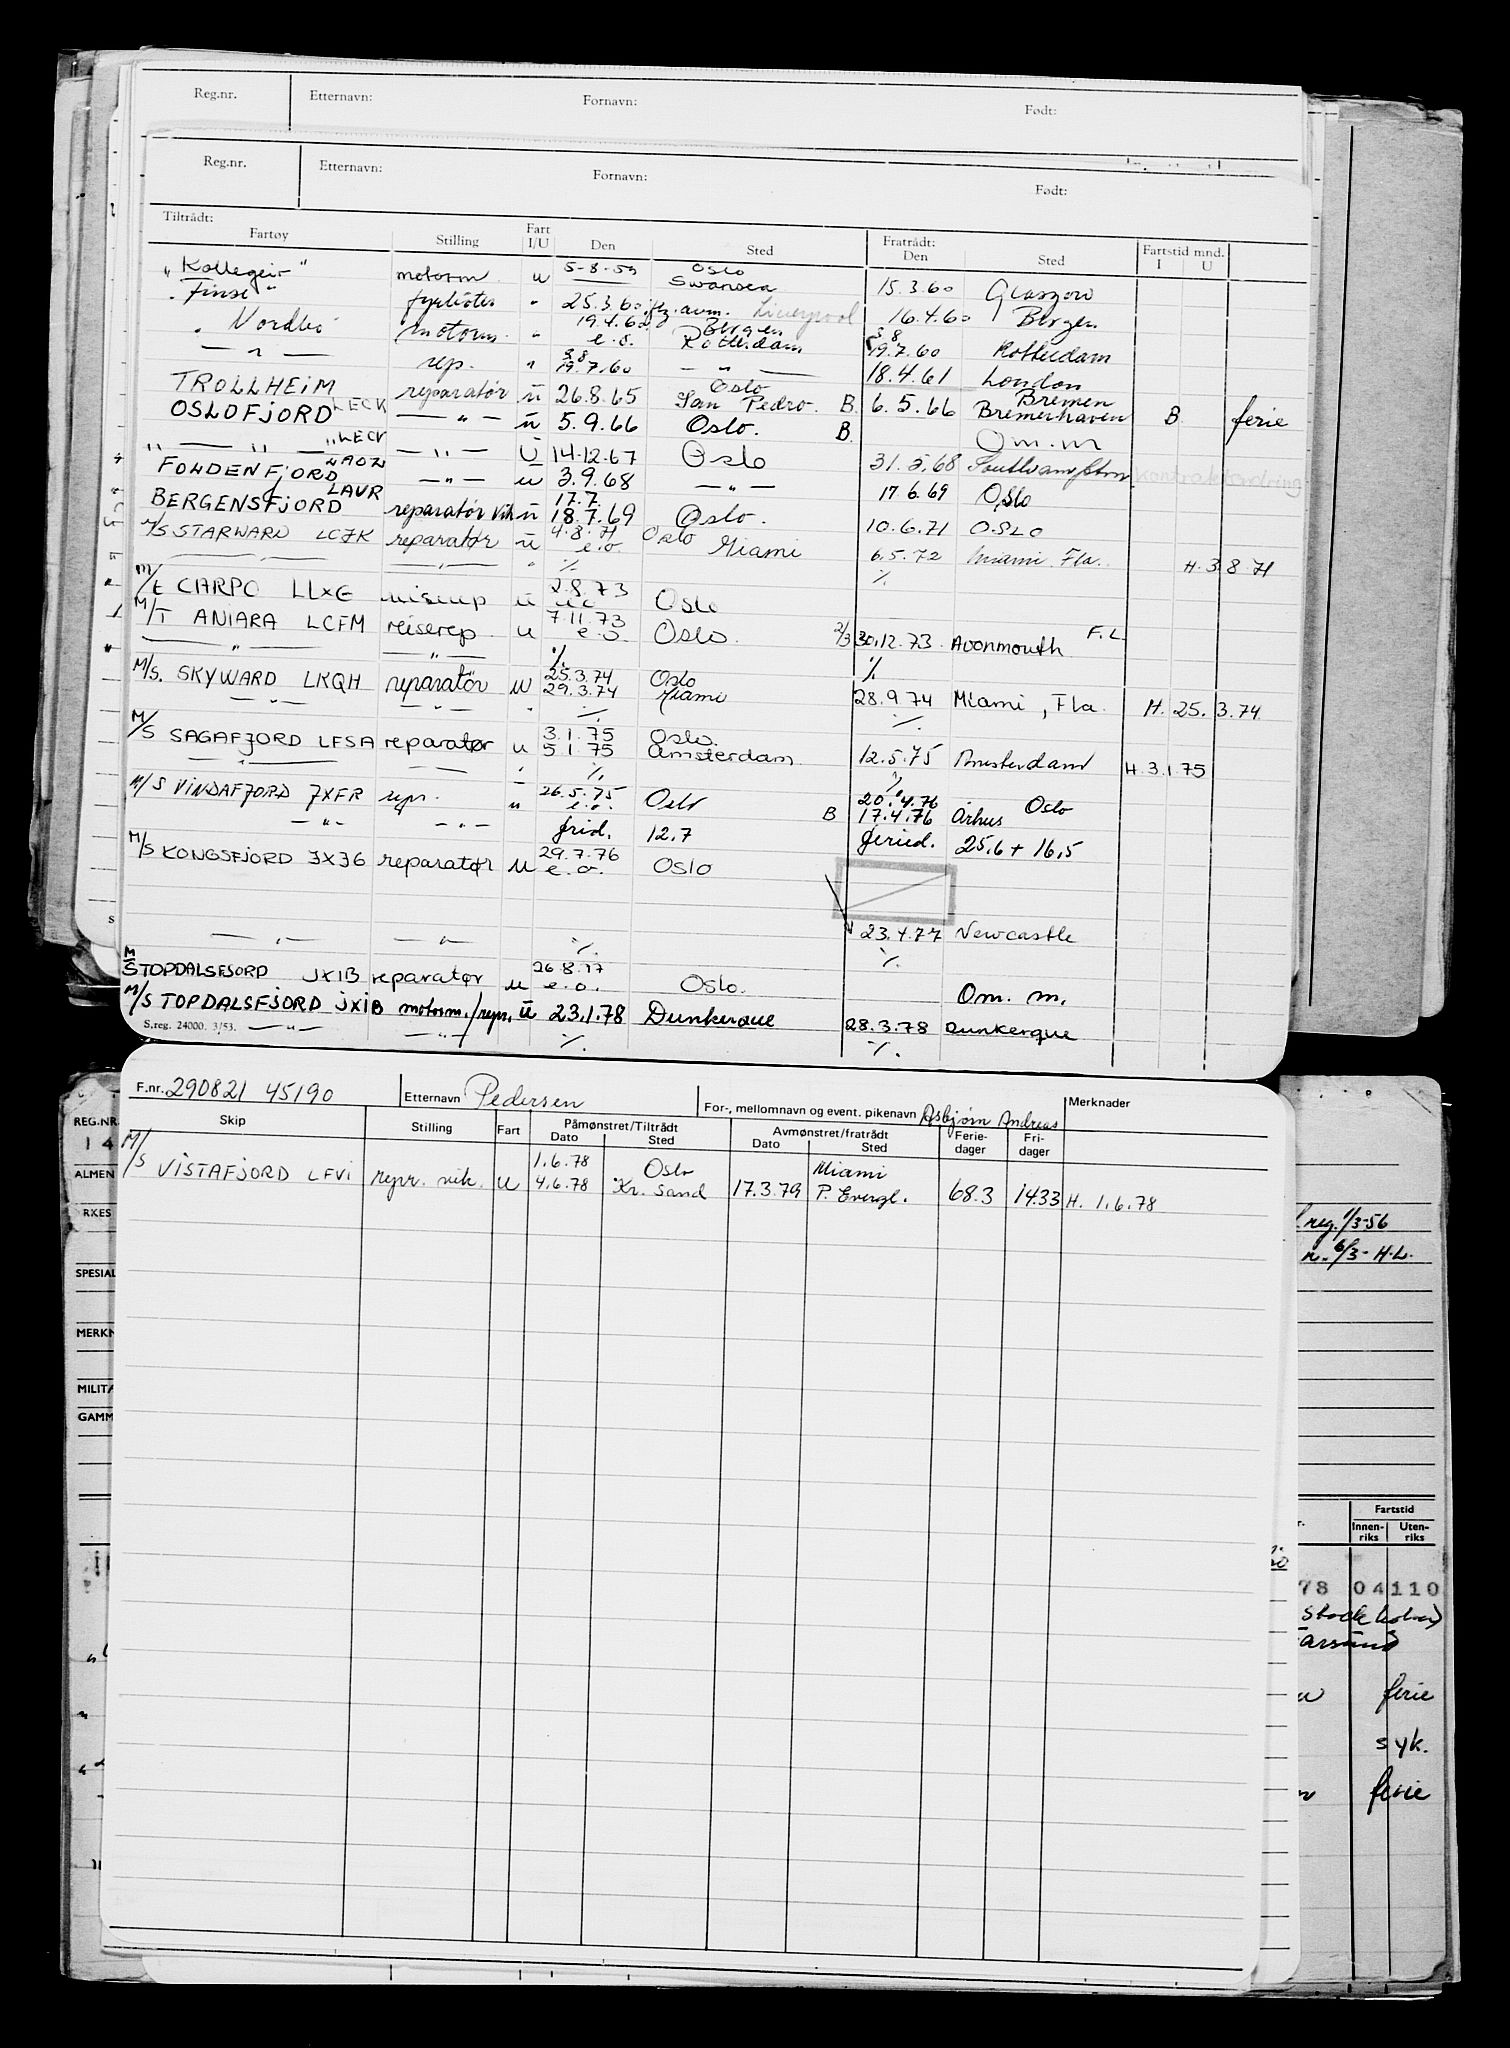 Reg.nr. Etternavn: Fornavn: Født:
Reg.nr. Etternavn: Fornavn: Født:
Tiltrådt: Fratrådt: Fartstid mnd.
Fartøy Stilling Fart I/U Den Sted Den Sted I U
"Kollegeir" motorm. u 5-8-59 Oslo Swansea 15.3.60 Glasgow
"Finse" fyrbøter " 25.3.60 Liverpool 16.4.60 Bergen
" Nordbo motorm. " 19.4.60 e.o. Bergen Rotterdam 3.8 19.7.60 Rotterdam
— " — rep. " 3.8 19.7.60 — " — 18.4.61 London
TROLLHEIM reparatør u 26.8.65 Oslo San Pedro. B. 6.5.66 Bremen Bremerhaven B ferie
OSLOFJORD LECK — " — u 5.9.66 Oslo. B. Om.m
" — " — " LECK — " — U 14.12.67 Oslo 31.5.68 Southampton Kontraktendring
FOLDENFJORD — " — u 3.9.68 — " — 17.6.69 Oslo
BERGENSFJORD LAVR reparatør vik u 17.7. 18.7.69 Oslo. 10.6.71 OSLO
M/S STARWARD LCJK reparatør u 4.8.71 e.o. Oslo Miami 6.5.72 Miami Fla. H. 3.8.71
— " — " ./. ./.
M/T CARPO LLXG reiserep u 2.8.73 Oslo
M/T ANIARA LCFM reiserep u 7.11.73 e.o. Oslo. 2/3 30.12.73 Avonmouth F.L
— " — — " — ./. ./.
M/S. SKYWARD LKQH reparatør u 25.3.74 29.3.74 Oslo Miami 28.9.74 Miami, Fla. H. 25.3.74
— " — — " — " ./. ./.
M/S SAGAFJORD LFSA reparatør u 3.1.75 5.1.75 Oslo. Amsterdam 12.5.75 Amsterdam H. 3.1.75
— " — — " — " ./. ./.
M/S VINDAFJORD JXFR repr. u 26.5.75 e.o. Oslo B 20.4.76 17.4.76 Oslo Århus
— " — — " — frid. 12.7 feried. 25,6 + 16,5
M/S KONGSFJORD JXJG reparatør u 29.7.76 e.o. Oslo
23.4.77 Newcastle
— " — — " — ./. ./.
M/S TOPDALSFJORD JXIB reparatør u 26.8.77 e.o. Oslo. Om. m.
M/S TOPDALSFJORD JXIB motorm./repr. u 23.1.78 Dunkerque 28.3.78 Dunkerque
S.reg. 24000. 3/53. — " — — " — ./. ./.
F.nr. 290821 45190 Etternavn Pedersen For-, mellomnavn og event. pikenavn Asbjørn Andreas Merknader
Skip Stilling Fart Påmønstret/Tiltrådt Dato Sted Avmønstret/fratrådt Dato Sted Ferie-dager Fri-dager
M/S VISTAFJORD LFVI repr. vik. u 1.6.78 4.6.78 Oslo Kr. Sand 17.3.79 Miami P. Evergl. 68.3 14.33 H. 1.6.78
REG.NR.
14
ALMEN
RKES
SPESIAL
MERKN
MILITÆ
GAMM
reg. 1/3-56
6/3- H.L.
Fartstid
Innen-riks Uten-riks
78 04110
Stockholm)
Farsund
ferie
syk.
ferie